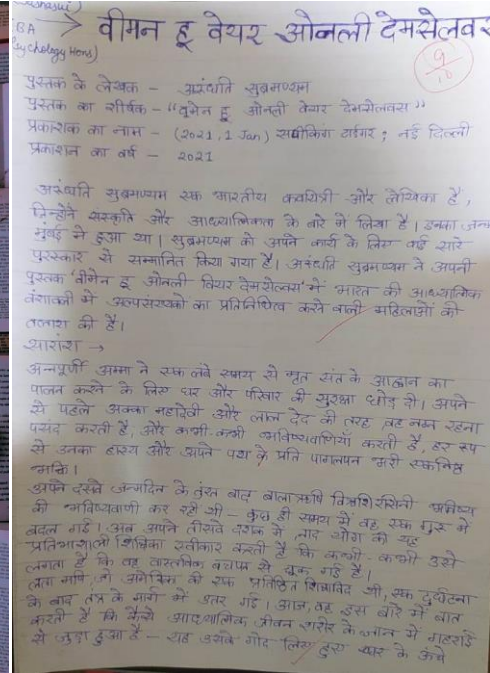 BA
वीमन हू वेयर ओनली देमसेल्वस
9/10
पुस्तक के लेखक – अरुंधति सुब्रमण्यम
पुस्तक का शीर्षक – "वुमेन हू ओनली वेयर देमसेलवस"
प्रकाशक का नाम – (2021, 1 Jan) स्पीकिंग टाईगर; नई दिल्ली
प्रकाशन का वर्ष – 2021
अरुंधति सुब्रमण्यम एक भारतीय कवयित्री और लेखिका है,
जिन्होंने संस्कृति और आध्यात्मिकता के बारे में लिखा है। इनका जन्म
मुंबई में हुआ था। सुब्रमण्यम को अपने कार्य के लिए कई सारे
पुरस्कार से सम्मानित किया गया है। अरुंधति सुब्रमण्यम ने अपनी
पुस्तक 'वीमेन हू ओनली वियर देमसेल्वस' में भारत की आध्यात्मिक
वंशावली में अल्पसंख्यकों का प्रतिनिधित्व करने वाली महिलाओं की
तलाश की है।
सारांश →
अन्नपूर्णी अम्मा ने एक लंबे समय से मृत संत के आह्वान का
पालन करने के लिए घर और परिवार की सुरक्षा छोड़ दी। अपने
से पहले अक्का महादेवी और लाल देद की तरह, वह नग्न रहना
पसंद करती है, और कभी-कभी भविष्यवाणियां करती है, हर रूप
से उनका हास्य और अपने पथ के प्रति पागलपन भरी एकनिष्ठ
भक्ति।
अपने दसवें जन्मदिन के तुरंत बाद बालाऋषि विश्वशिरासिनी भविष्य
की भविष्यवाणी कर रही थी – कुछ ही समय में वह एक गुरु में
बदल गई। अब अपने तीसवें दशक में, नाद योग की यह
प्रतिभाशाली शिक्षिका स्वीकार करती है कि कभी-कभी उसे
लगता है कि वह वास्तविक बचपन से चूक गई है।
लता मणि, जो अमेरिका की एक प्रतिष्ठित शिक्षाविद थी, एक दुर्घटना
के बाद तंत्र के मार्ग में उतर गई। आज, वह इस बारे में बात
करती है कि कैसे आध्यात्मिक जीवन शरीर के ज्ञान में गहराई
से जुड़ा हुआ है – यह उसके गोद लिए हुए घर के ऊंचे